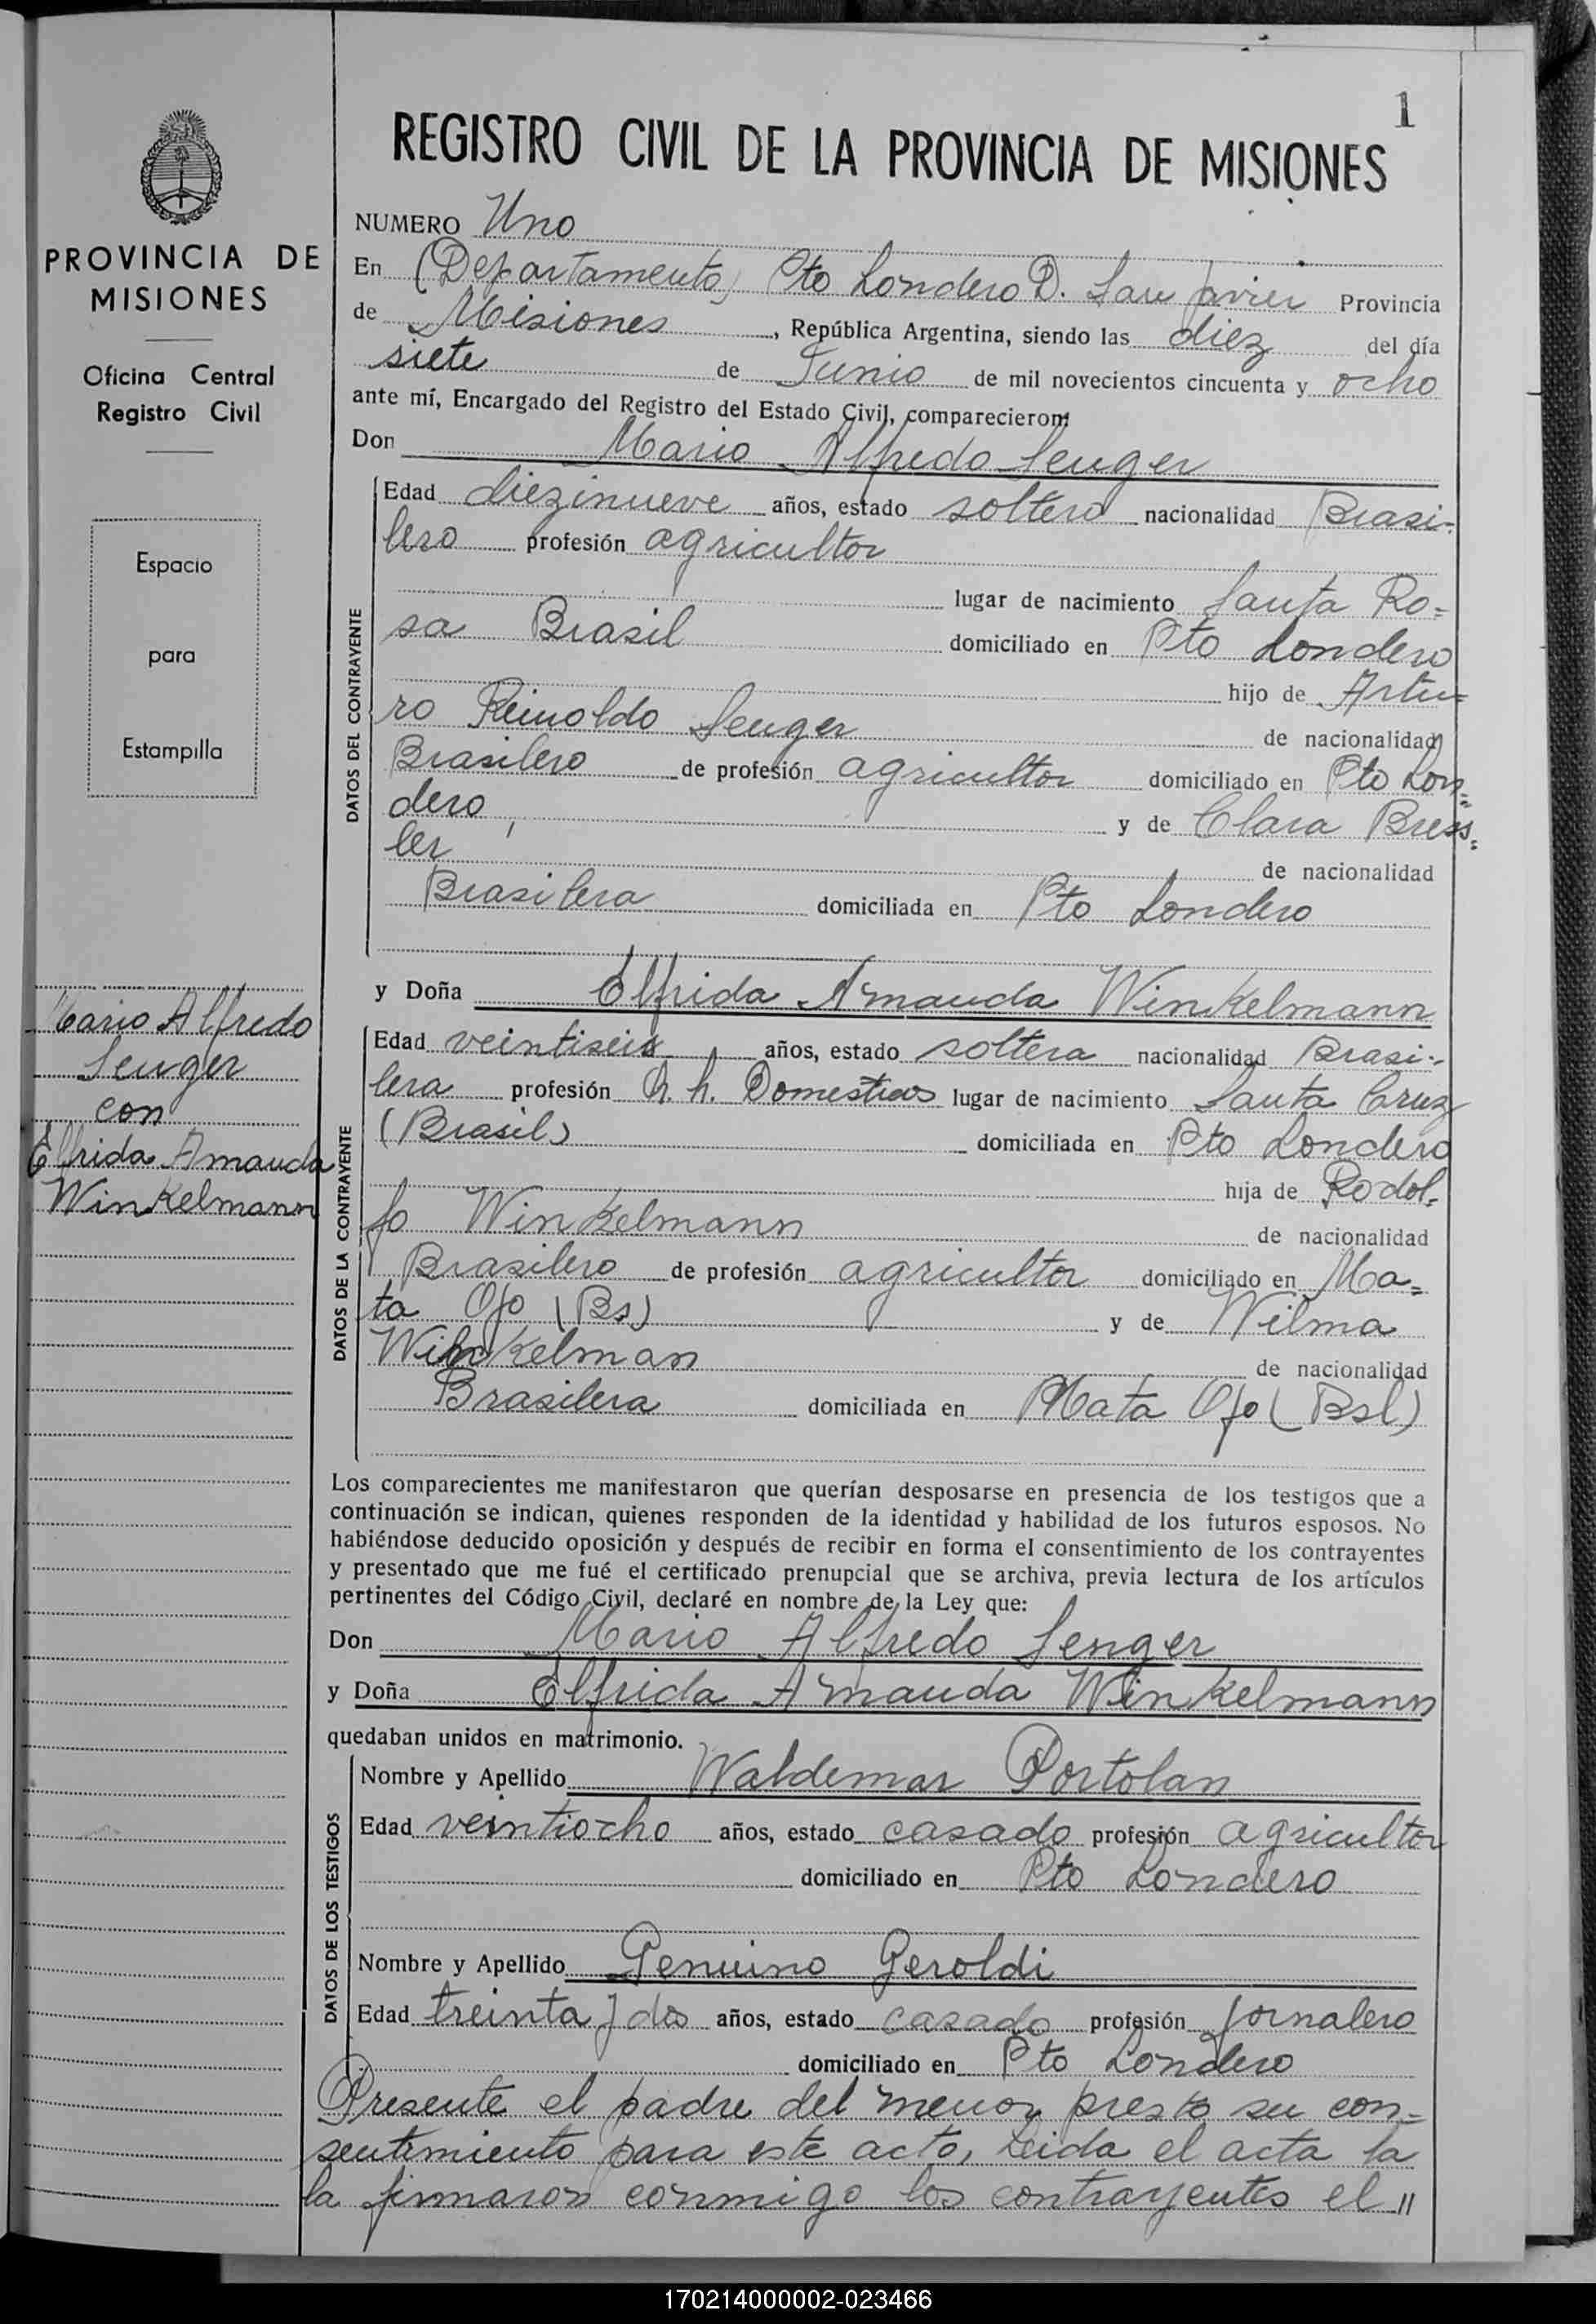 1
REGISTRO CIVIL DE LA PROVINCIA DE MISIONES
PROVINCIA DE
MISIONES
Oficina Central
Registro Civil
Espacio
para
Estampilla
Mario Alfredo
Senger
con
Elfrida Amanda
Winkelmann
NUMERO Uno
En (Departamento) Pto Londero D. San Javier Provincia
de Misiones, República Argentina, siendo las diez del día
siete de Junio de mil novecientos cincuenta y ocho
ante mí, Encargado del Registro del Estado Civil, comparecieron:
Don Mario Alfredo Senger
DATOS DEL CONTRAYENTE
Edad diezinueve años, estado soltero nacionalidad Brasi-
lero profesión agricultor
lugar de nacimiento Santa Ro=
sa Brasil domiciliado en Pto Londero
hijo de Artu=
ro Reinoldo Senger de nacionalidad
Brasilero de profesión agricultor domiciliado en Pto Lon=
dero, y de Clara Bress=
ler de nacionalidad
Brasilera domiciliada en Pto Londero
y Doña Elfrida Amanda Winkelmann
DATOS DE LA CONTRAYENTE
Edad veintiseis años, estado soltera nacionalidad Brasi-
lera profesión Q. h. Domesticos lugar de nacimiento Santa Cruz
(Brasil) domiciliada en Pto Londero
hija de Rodol=
fo Winkelmann de nacionalidad
Brasilero de profesión agricultor domiciliado en Ma=
ta Ojo (Bs) y de Wilma
Winkelman de nacionalidad
Brasilera domiciliada en Mata Ojo (Bsl)
Los comparecientes me manifestaron que querían desposarse en presencia de los testigos que a
continuación se indican, quienes responden de la identidad y habilidad de los futuros esposos. No
habiéndose deducido oposición y después de recibir en forma el consentimiento de los contrayentes
y presentado que me fué el certificado prenupcial que se archiva, previa lectura de los artículos
pertinentes del Código Civil, declaré en nombre de la Ley que:
Don Mario Alfredo Senger
y Doña Elfrida Amanda Winkelmann
quedaban unidos en matrimonio.
DATOS DE LOS TESTIGOS
Nombre y Apellido Waldemar Portolan
Edad veintiocho años, estado casado profesión agricultor
domiciliado en Pto Londero
Nombre y Apellido Genuino Geroldi
Edad treinta y dos años, estado casado profesión jornalero
domiciliado en Pto Londero
Presente el padre del menor presto su con=
sentimiento para este acto, Leida el acta la
la firmaron conmigo los contrayentes el //
170214000002-023466